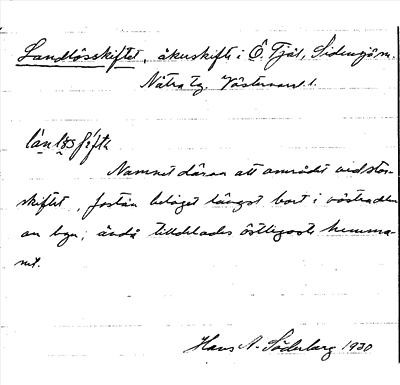 Landlösskiftet, åkerskifte i Ö. Tjäl, Sidensjö sn.
Nätra tg. Västernorrl. l.
Namnet däran att området vid stor-
skiftet, fastän beläget längst bort i västra delen
av byn, ändå tilldelades östligaste hemma-
net.
Hans A. Söderberg 1930